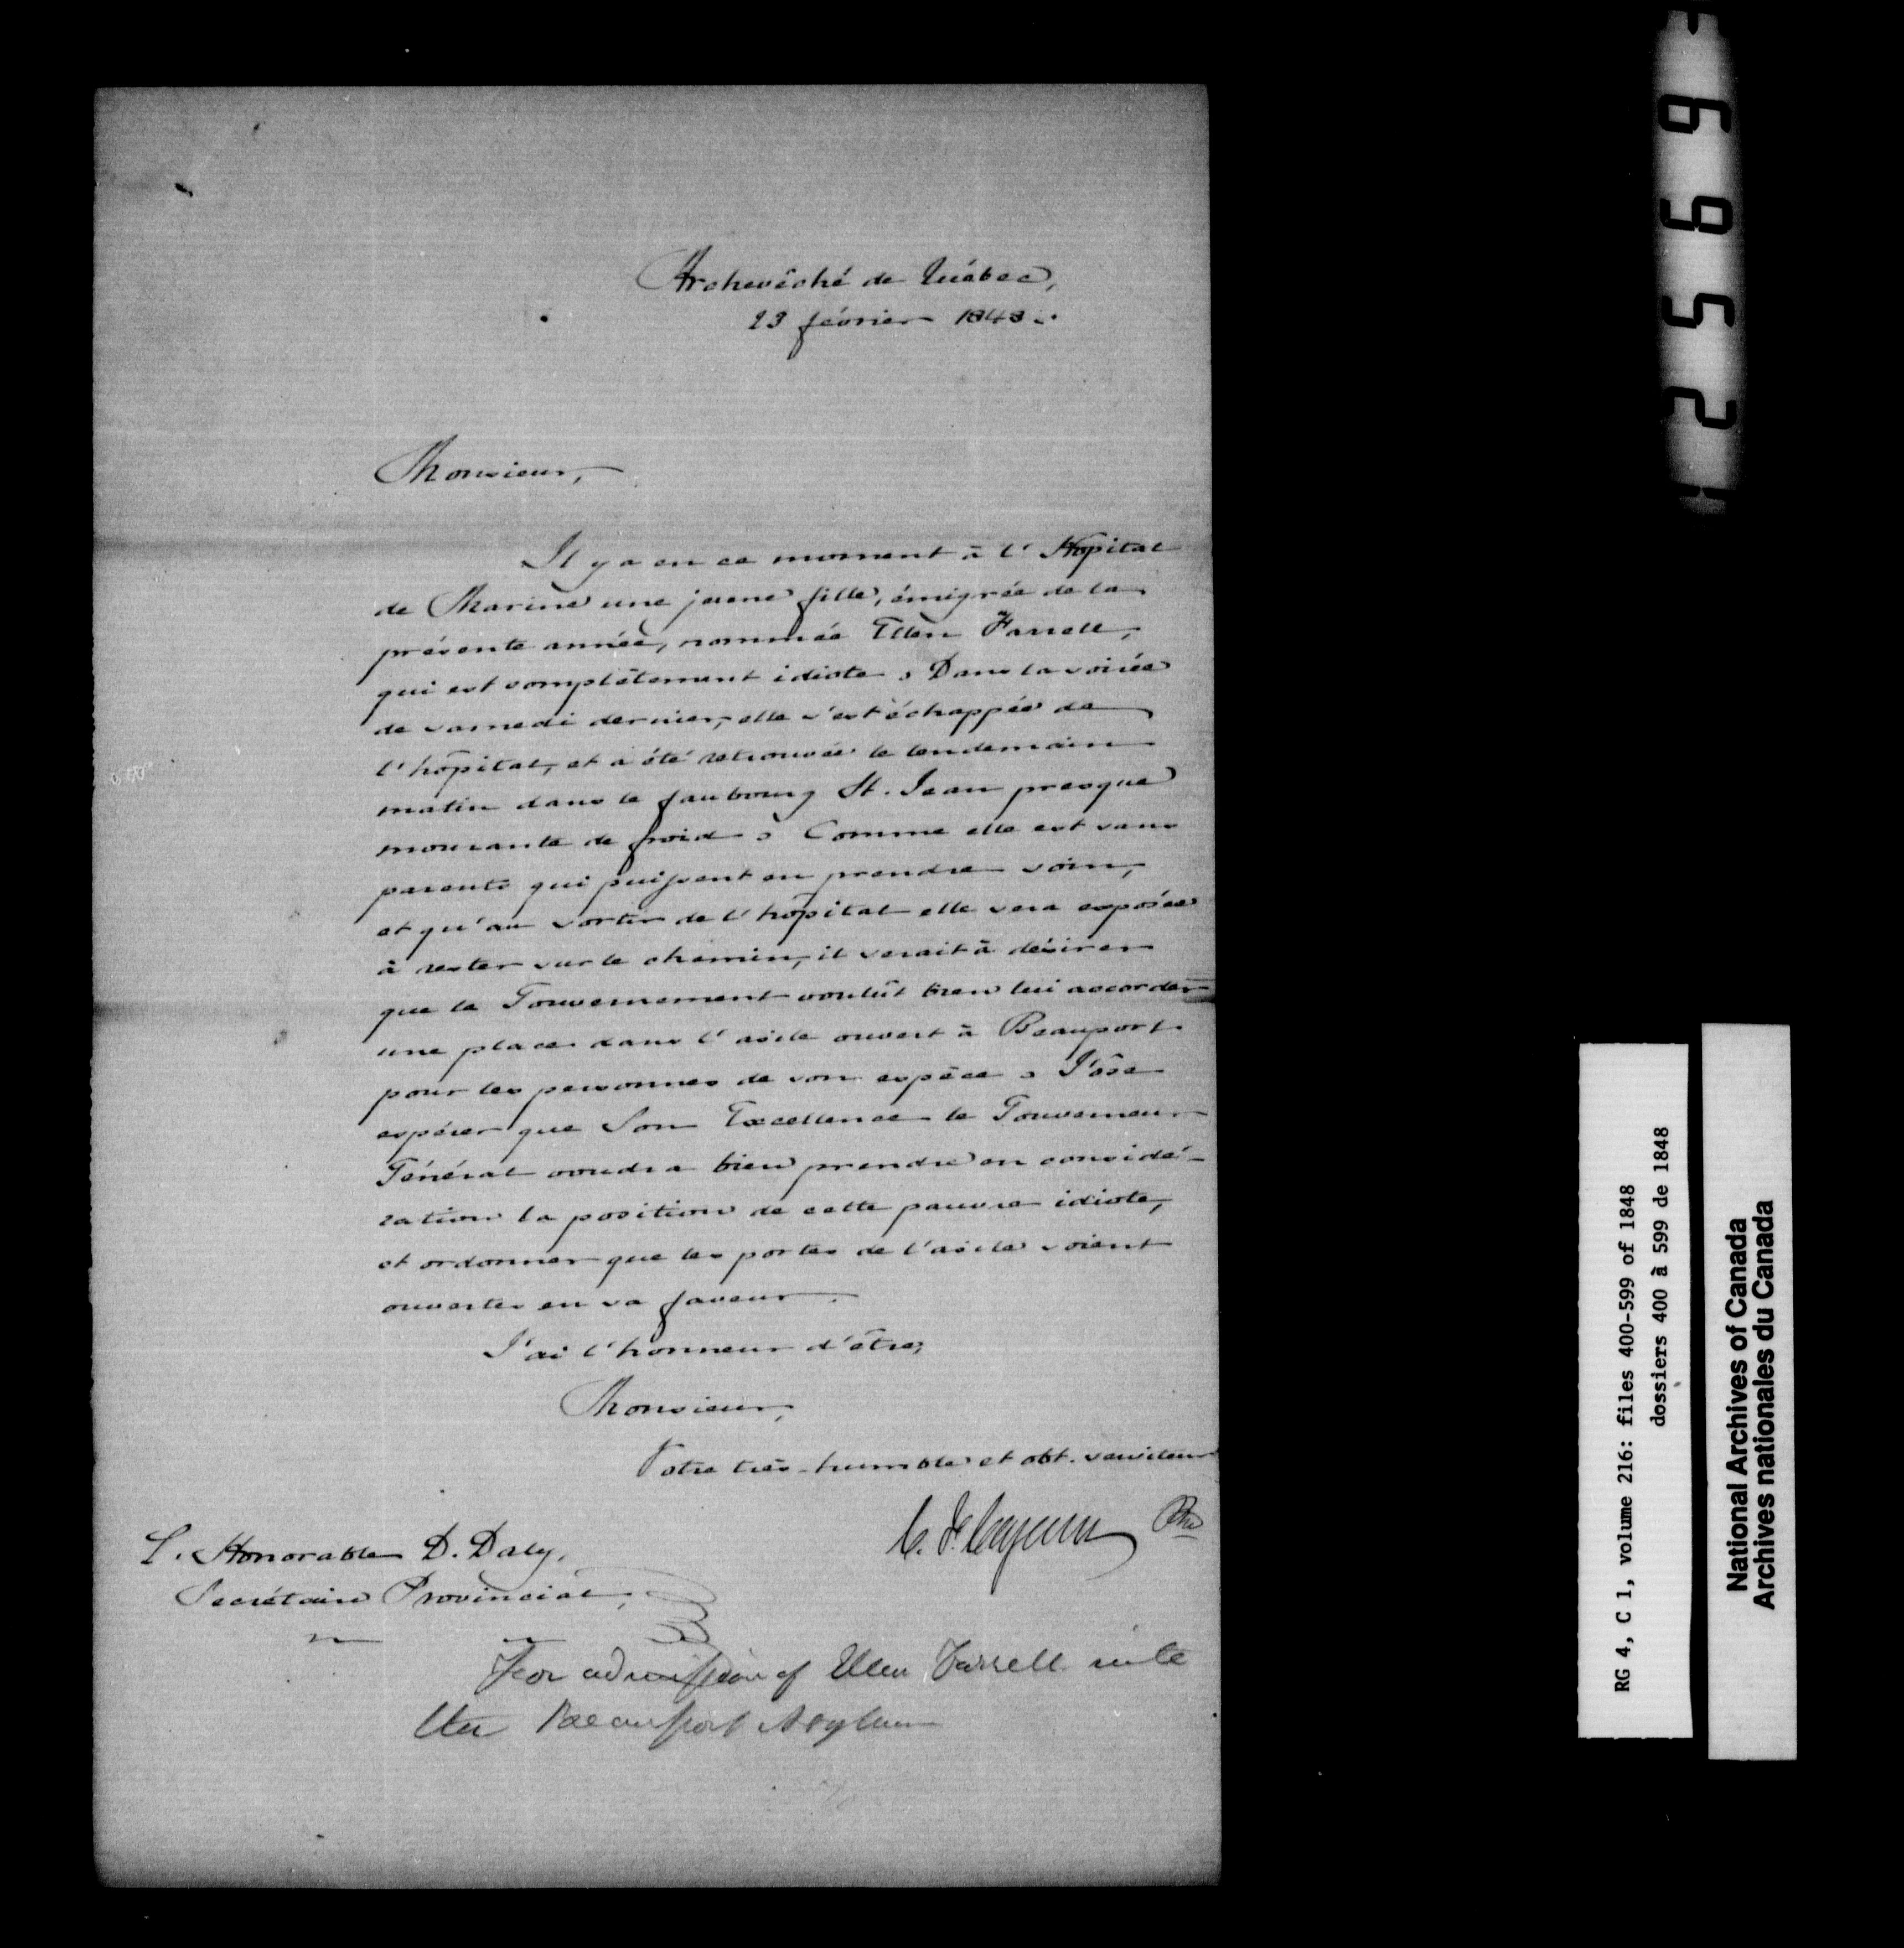 Archevêché de Québec,
23 février 1848.
Monsieur,
Il y a en ce moment à l'Hôpital
de Marine une jeune fille, émigrée de la
présente année, nommée Ellen Farrell,
qui est complètement idiote. Dans la soirée
de samedi dernier, elle s'est échappée de
l'hôpital, et a été retrouvée le lendemain
matin dans le faubourg St. Jean presque
mourante de froid. Comme elle est sans
parents qui puissent en prendre soin,
et qu'au sortir de l'hôpital elle sera exposée
à rester sur le chemin, il serait à désirer
que le Gouvernement voulût bien lui accorder
une place dans l'asile ouvert à Beauport
pour les personnes de son espèce. J'ose
espérer que Son Excellence le Gouverneur
Général voudra bien prendre en considé-
ration la position de cette pauvre idiote,
et ordonner que les portes de l'asile soient
ouvertes en sa faveur.
J'ai l'honneur d'être,
Monsieur,
Votre très-humble et obt. serviteur
C. F. Cazeau Ptre
L'Honorable D. Daly,
Secrétaire Provincial,
For admission of Ellen Farrell into
the Beauport Asylum
2569
RG 4, C 1, volume 216: files 400-599 of 1848
dossiers 400 à 599 de 1848
National Archives of Canada
Archives nationales du Canada